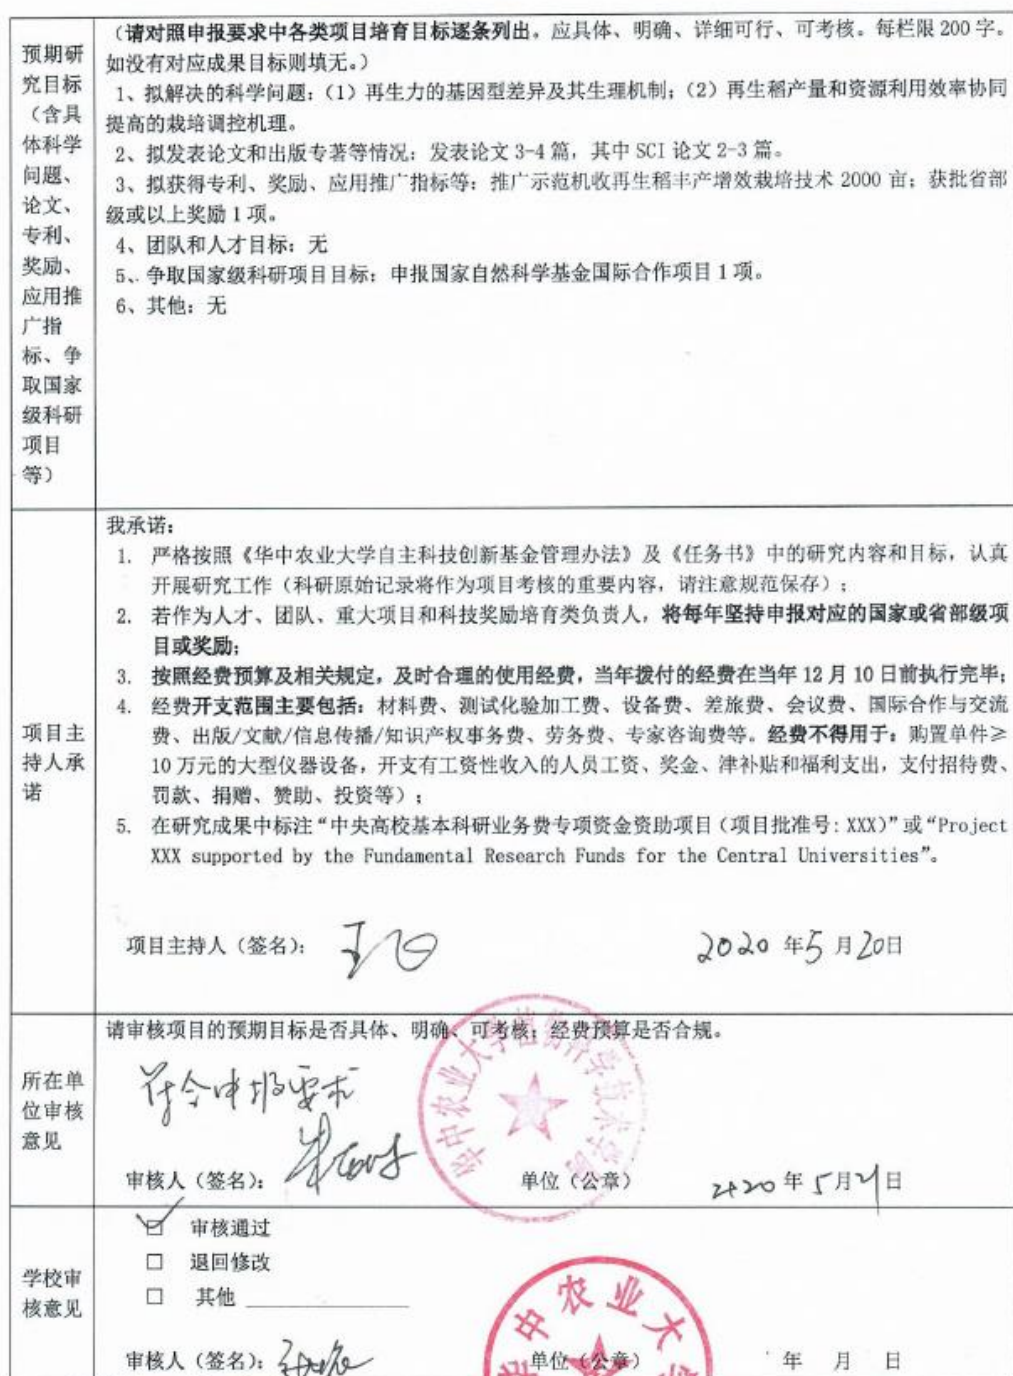 预期研
究目标
（含具
体科学
问题、
论文、
专利、
奖励、
应用推
广指
标、争
取国家
级科研
项目
等）
（请对照申报要求中各类项目培育目标逐条列出。应具体、明确、详细可行、可考核。每栏限 200 字。
如没有对应成果目标则填无。）
1、拟解决的科学问题：（1）再生力的基因型差异及其生理机制；（2）再生稻产量和资源利用效率协同
提高的栽培调控机理。
2、拟发表论文和出版专著等情况：发表论文 3-4 篇，其中 SCI 论文 2-3 篇。
3、拟获得专利、奖励、应用推广指标等：推广示范机收再生稻丰产增效栽培技术 2000 亩；获批省部
级或以上奖励 1 项。
4、团队和人才目标：无
5、争取国家级科研项目目标：申报国家自然科学基金国际合作项目 1 项。
6、其他：无
项目主
持人承
诺
我承诺：
1. 严格按照《华中农业大学自主科技创新基金管理办法》及《任务书》中的研究内容和目标，认真
开展研究工作（科研原始记录将作为项目考核的重要内容，请注意规范保存）；
2. 若作为人才、团队、重大项目和科技奖励培育类负责人，将每年坚持申报对应的国家或省部级项
目或奖励；
3. 按照经费预算及相关规定，及时合理的使用经费，当年拨付的经费在当年 12 月 10 日前执行完毕；
4. 经费开支范围主要包括：材料费、测试化验加工费、设备费、差旅费、会议费、国际合作与交流
费、出版/文献/信息传播/知识产权事务费、劳务费、专家咨询费等。经费不得用于：购置单件≥
10 万元的大型仪器设备，开支有工资性收入的人员工资、奖金、津补贴和福利支出，支付招待费、
罚款、捐赠、赞助、投资等）；
5. 在研究成果中标注“中央高校基本科研业务费专项资金资助项目（项目批准号：XXX）”或“Project
XXX supported by the Fundamental Research Funds for the Central Universities”。
项目主持人（签名）： 王飞 2020 年 5 月 20 日
所在单
位审核
意见
请审核项目的预期目标是否具体、明确、可考核；经费预算是否合规。
符合申报要求
华中农业大学植物科学技术学院
审核人（签名）： 单位（公章） 2020 年 5 月 21 日
学校审
核意见
☑ 审核通过
□ 退回修改
□ 其他
华中农业大学
审核人（签名）： 单位（公章） 年 月 日